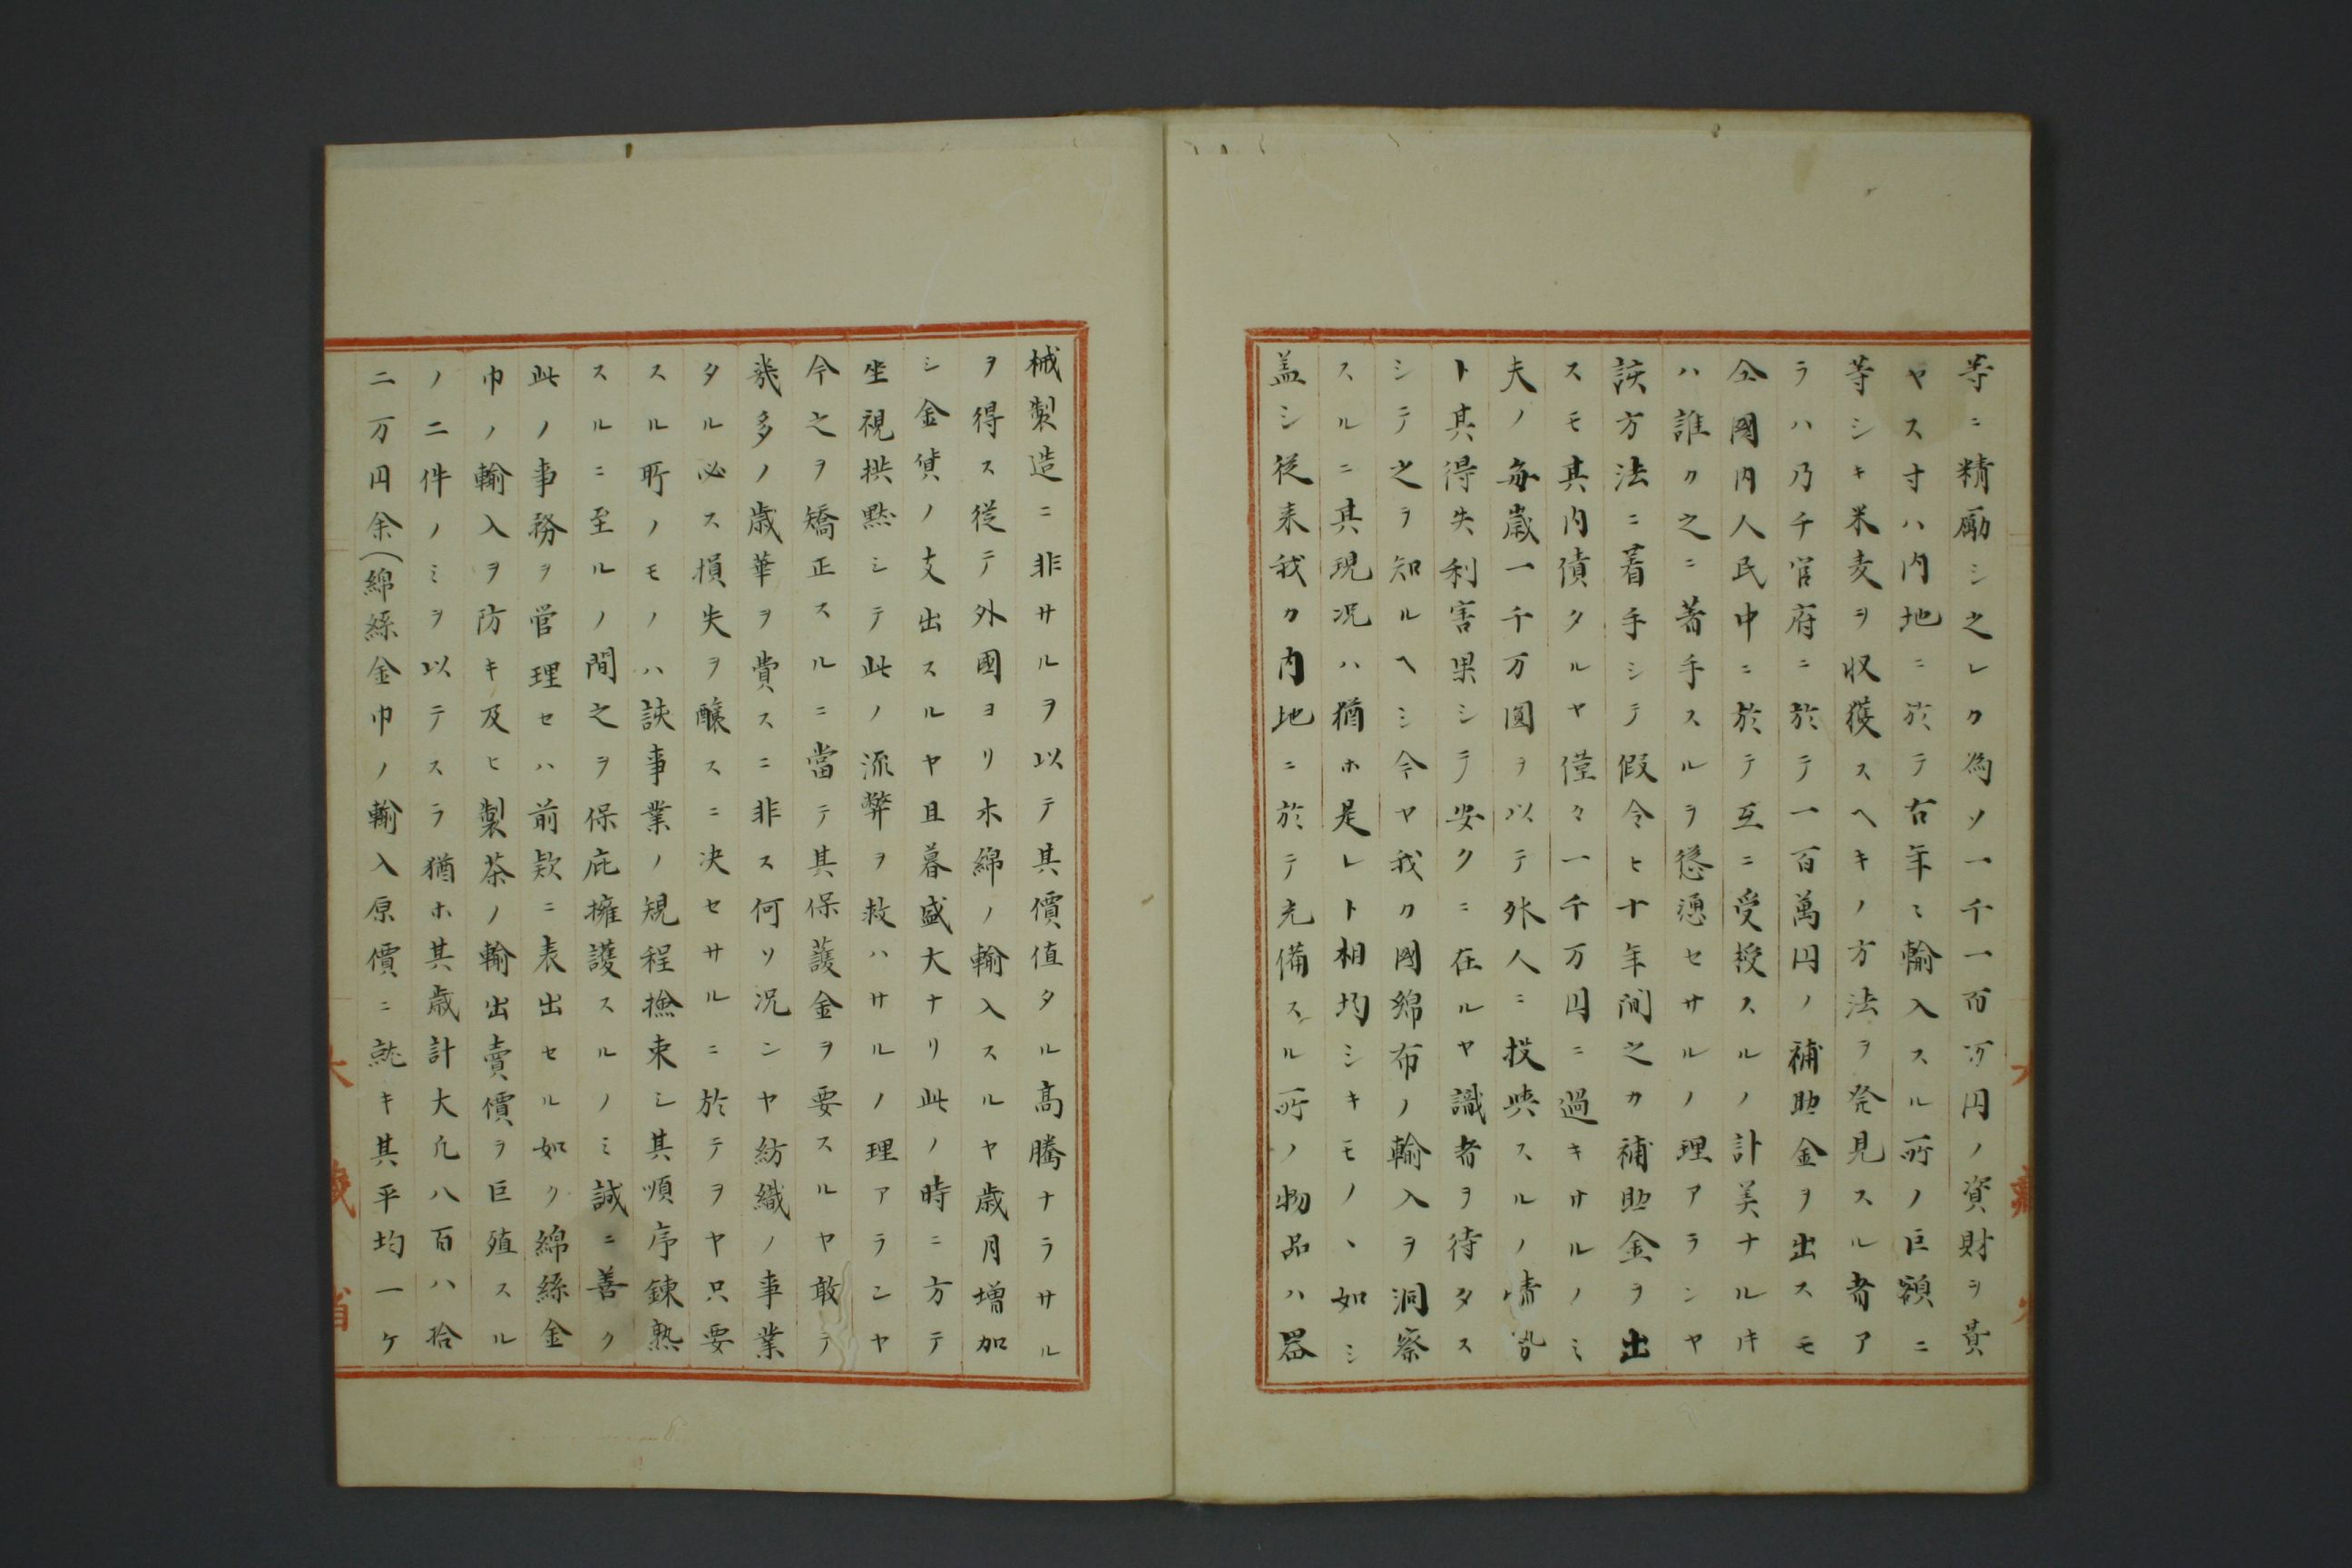 等ニ精励シ之レカ為ソ一千一百万円ノ資財ヲ費
ヤス寸ハ内地ニ於テ右年ミ輸入スル所ノ巨額ニ
等シキ米麦ヲ収獲スヘキノ方法ヲ発見スル者ア
ラハ乃チ官府ニ於テ一百萬円ノ補助金ヲ出スモ
全國内人民中ニ於テ互ニ受授スルノ計美ナルキ
ハ誰カ之ニ著手スルヲ慫慂セサルノ理アランヤ
該方法ニ着手シテ假令ヒ十年間之カ補助金ヲ出
スモ其内債タルヤ僅々一千万円ニ過キサルノミ
夫ノ毎歳一千万圓ヲ以テ外人ニ投與スルノ情勢
ト其得失利害果シテ安クニ在ルヤ識者ヲ待タス
シテ之ヲ知ルヘシ今ヤ我カ國綿布ノ輸入ヲ洞察
スルニ其現況ハ猶ホ是レト相均シキモノヽ如シ
盖シ従来我カ内地ニ於テ充備スル所ノ物品ハ器
械製造ニ非サルヲ以テ其價値タル高騰ナラサル
ヲ得ス従テ外國ヨリ木綿ノ輸入スルヤ歳月増加
シ金貨ノ支出スルヤ且暮盛大ナリ此ノ時ニ方テ
坐視拱黙シテ此ノ流弊ヲ救ハサルノ理アランヤ
今之ヲ矯正スルニ當テ其保護金ヲ要スルヤ敢テ
幾多ノ歳華ヲ費スニ非ス何ソ況ンヤ紡織ノ事業
タル必ス損失ヲ醸スニ决セサルニ於テヲヤ只要
スル所ノモノハ該事業ノ規程撿束シ其順序錬熟
スルニ至ルノ間之ヲ保庇擁護スルノミ誠ニ善ク
此ノ事務ヲ管理セハ前欵ニ表出セル如ク綿絲金
巾ノ輸入ヲ防キ及ヒ製茶ノ輸出賣價ヲ巨殖スル
ノ二件ノミヲ以テスラ猶ホ其歳計大凡八百八拾
二万円余(綿絲金巾ノ輸入原價ニ就キ其平均一ケ